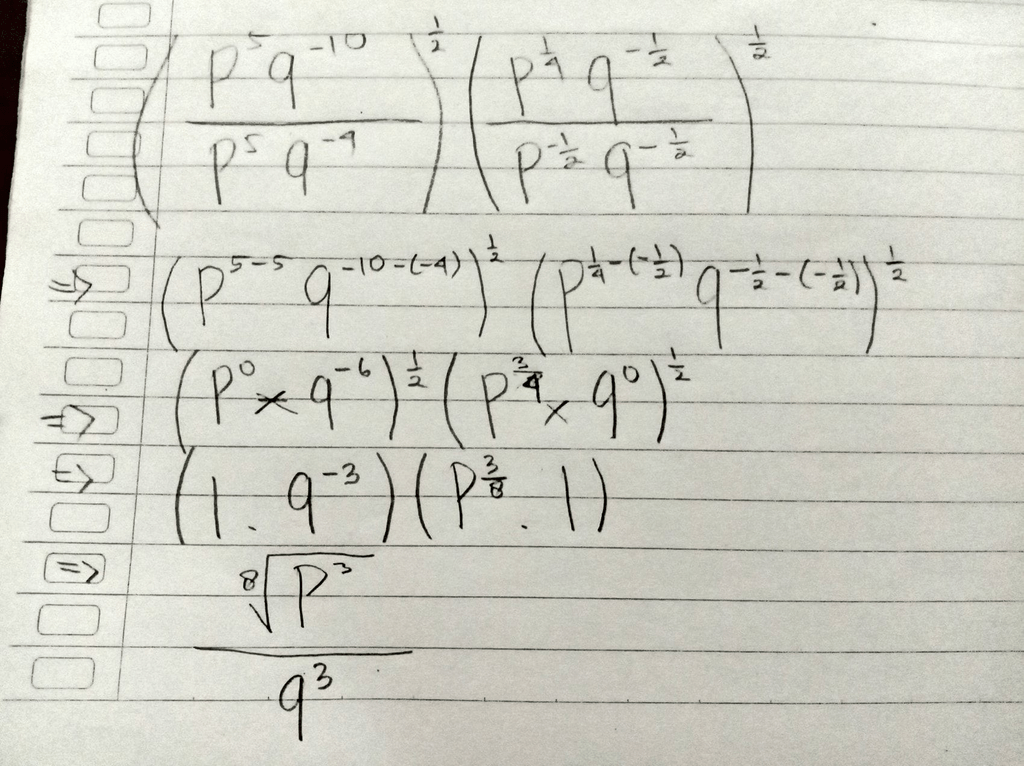 (p⁵ q⁻¹⁰ / p⁵ q⁻⁴)^(1/2) (p^(1/4) q^(-1/2) / p^(-1/2) q^(-1/2))^(1/2)
=> (p^(5-5) q^(-10-(-4)))^(1/2) (p^(1/4-(-1/2)) q^(-1/2-(-1/2)))^(1/2)
=> (p⁰ × q⁻⁶)^(1/2) (p^(3/4) × q⁰)^(1/2)
=> (1 . q⁻³) (p^(3/8) . 1)
=> ⁸√(p³) / q³